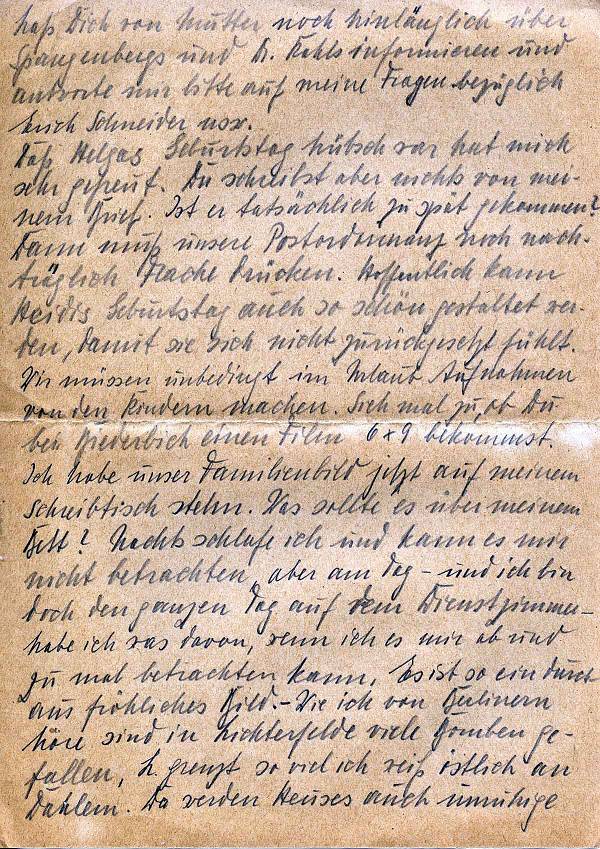 laß Dich von Mutter noch hinlänglich über
Spangenbergs und Dr. Kohls informieren und
antworte mir bitte auf meine Fragen bezüglich
Erich Schneider usw.
Daß Helgas Geburtstag hübsch war hat mich
sehr gefreut. Du schreibst aber nichts von mei-
nem Brief. Ist er tatsächlich zu spät gekommen?
Dann muß unsere Postordonnanz noch nach-
träglich Wache drücken. Hoffentlich kann
Heidis Geburtstag auch so schön gestaltet wer-
den, damit sie sich nicht zurückgesetzt fühlt.
Wir müssen unbedingt im Urlaub Aufnahmen
von den Kindern machen. Sieh mal zu, ob Du
bei einen Film 6x9 bekommst.
Ich habe unser Familienbild jetzt auf meinem
Schreibtisch stehn. Was sollte es über meinem
Bett? Nachts schlafe ich und kann es mir
nicht betrachten, aber am Tag – und ich bin
doch den ganzen Tag auf dem Dienstzimmer –
habe ich was davon, wenn ich es mir ab und
zu mal betrachten kann. Es ist so ein durch-
aus fröhliches Bild. – Wie ich von Berlinern
höre sind in Lichterfelde viele Bomben ge-
fallen, L. grenzt so viel ich weiß östlich an
Dahlem. Da werden Heuses auch unruhige